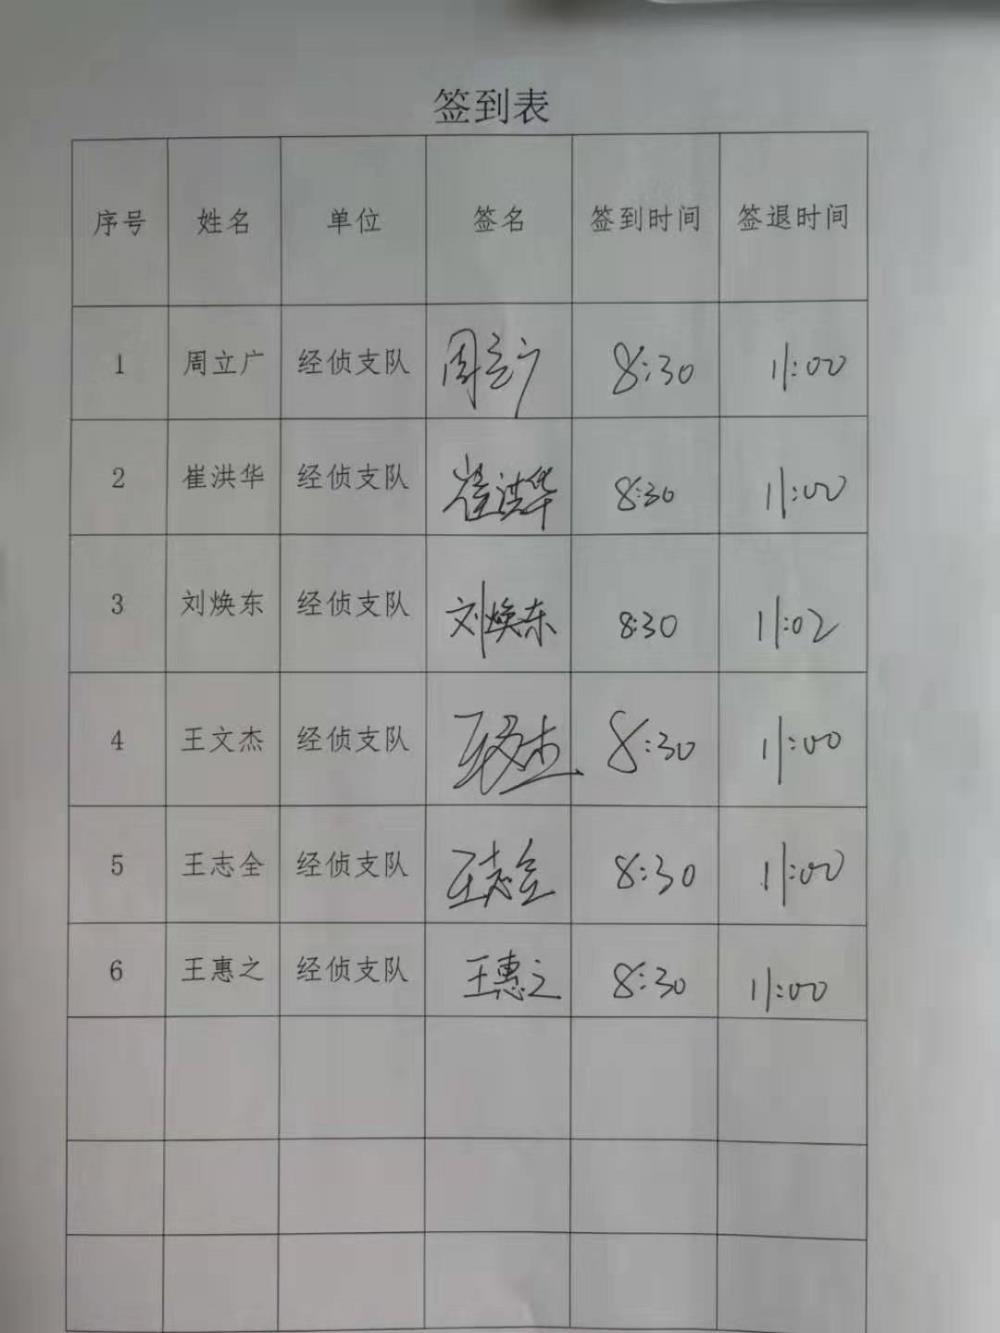 签到表
序号 姓名 单位 签名 签到时间 签退时间
1 周立广 经侦支队 周立广 8:30 11:00
2 崔洪华 经侦支队 崔洪华 8:30 11:00
3 刘焕东 经侦支队 刘焕东 8:30 11:02
4 王文杰 经侦支队 王文杰 8:30 11:00
5 王志全 经侦支队 王志全 8:30 11:00
6 王惠之 经侦支队 王惠之 8:30 11:00